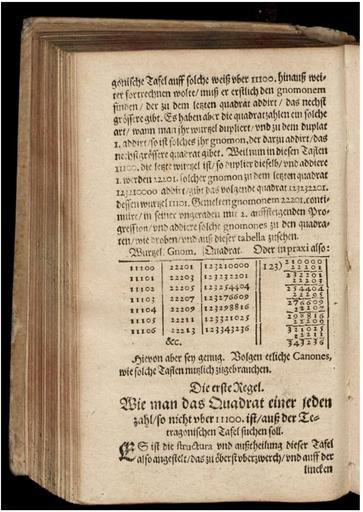 gonische Tafel auff solche weiß vber 11100. hinauß wei-
ter fortrechnen wolte/ muß er erstlich den gnomonem
finden/ der zu dem letzten quadrat addirt/ das nechst
grössere gibt. Es haben aber die quadratzahlen ein solche
art/ wann man jhr wurzel duplirt/ vnd zu dem duplat
1. addirt/ so ist solches jhr gnomon, der darzu addirt/ das
nechst grössere quadrat gibet. Weil nun in diesen Taflen
11100. die letzte wurtzel ist/ so duplier dieselb/ vnd addiere
1. werden 22201. solcher gnomon zu dem letzten quadrat
123210000 addirt/ gibt das volgende quadrat 123232201.
dessen wurzel 11101. Gemelten gnomonem 22201. conti-
nuire/ in seiner vngeraden mit 2. auffsteigenden Pro-
gression/ vnd addiere solche gnomones zu den quadra-
ten/ wie droben/ vnd auß dieser tabella zusehen.
Wurzel. Gnom. Quadrat. Oder in praxi also:
11100 22201 123210000
11101 22203 123232201
11102 22205 123254404
11103 22207 123276609
11104 22209 123298816
11105 22211 123321025
11106 22213 123343236
&c.
123) 210000
22201
232201
22203
254404
22205
276609
22207
298816
22209
321025
22211
343236
Hievon aber sey genug. Volgen etliche Canones,
wie solche Taflen nutzlich zugebrauchen.
Die erste Regel.
Wie man das Quadrat einer jeden
zahl/ so nicht vber 11100. ist/ auß der Te-
tragonischen Tafel suchen soll.
ES ist die structura vnd außtheilung dieser Tafel
also angestelt/ das zu öberst vberzwerch/ vnd auff der
lincken